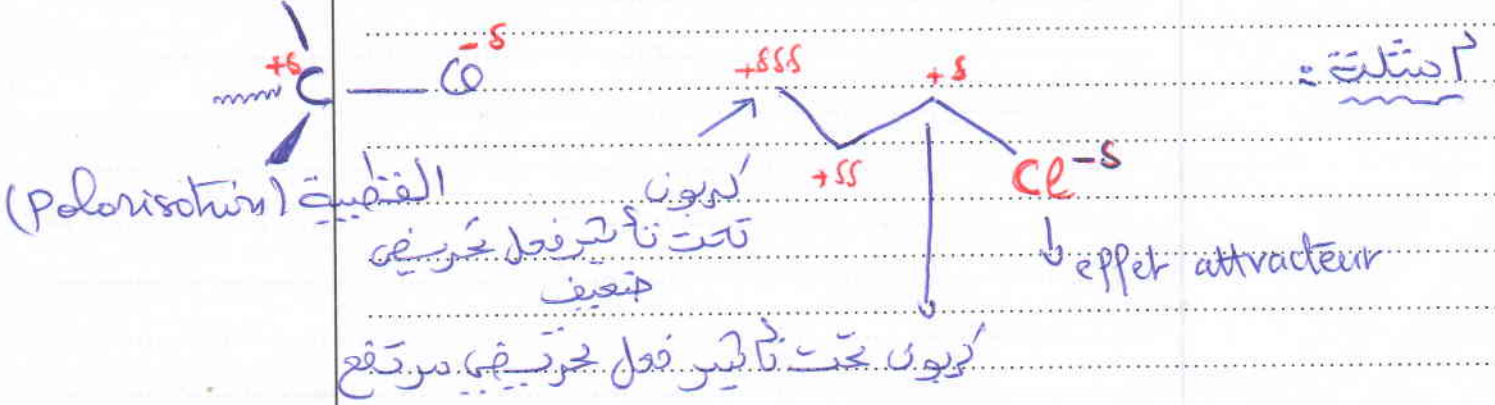 أمثلة :
+δ C — Cl -δ
+δδδ +δ
+δδ Cl -δ
القطبية (polarisation)
كربون
تحت تأثير فعل تحريضي
ضعيف
effet attracteur
كربون تحت تأثير فعل تحريضي مرتفع